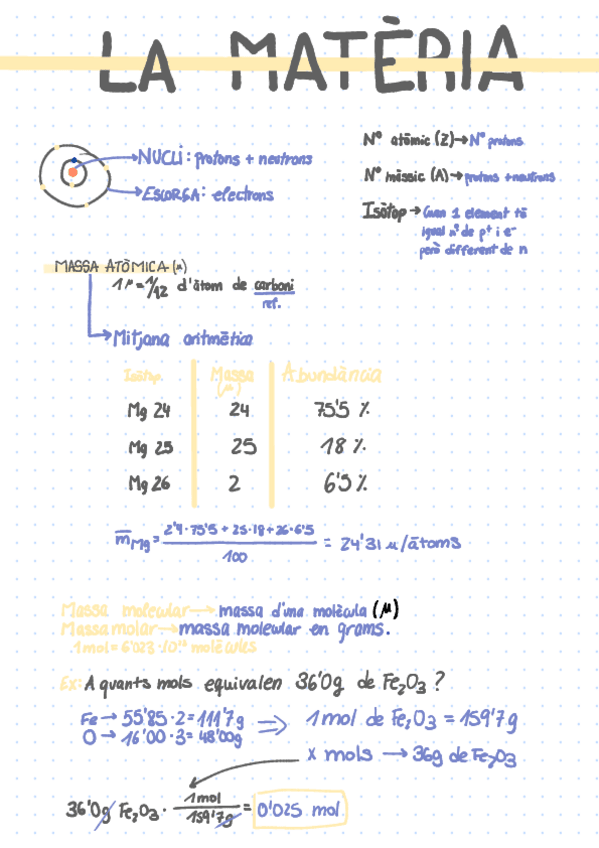 LA MATÈRIA
NUCLI: protons + neutrons
ESCORÇA: electrons
Nº atòmic (Z)→Nº protons
Nº màssic (A)→protons+neutrons
Isòtop→Quan 1 element té
igual nº de p⁺ i e⁻
però different de n
MASSA ATÒMICA (μ)
1 μ = 1/12 d'àtom de carboni
ref.
Mitjana aritmètica
Isòtop. Massa (μ) Abundància
Mg 24 24 75'5 %
Mg 25 25 18 %
Mg 26 2 6'5 %
m̅Mg = 2'4·75'5 + 25·18 + 26·6'5 / 100 = 24'31 μ/àtoms
Massa molecular→massa d'una molècula (μ)
Massa molar→massa molecular en grams.
1mol = 6'023·10²³ molècules
Ex: A quants mols equivalen 36'0g de Fe₂O₃?
Fe→55'85·2=111'7g ⇒ 1 mol de Fe₂O₃ = 159'7g
O→16'00·3=48'00g
x mols → 36g de Fe₂O₃
36'0g Fe₂O₃ · 1mol / 159'7g = 0'025 mol